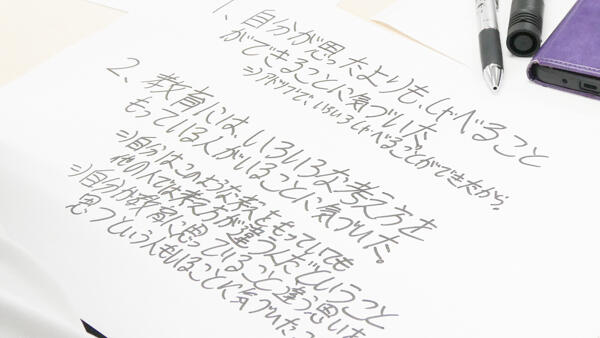 1、自分が思ったよりも、しゃべること
ができることに気づいた。
⇒アドリブで、いろいろしゃべることができたから。
2、教育には、いろいろな考え方を
もっている人がいることに気づいた。
⇒自分はこのような考えをもっていても
他の人では考え方が違うんだということ
⇒自分が教育に思っていること違う思いを
思うという人もいることに気づいた